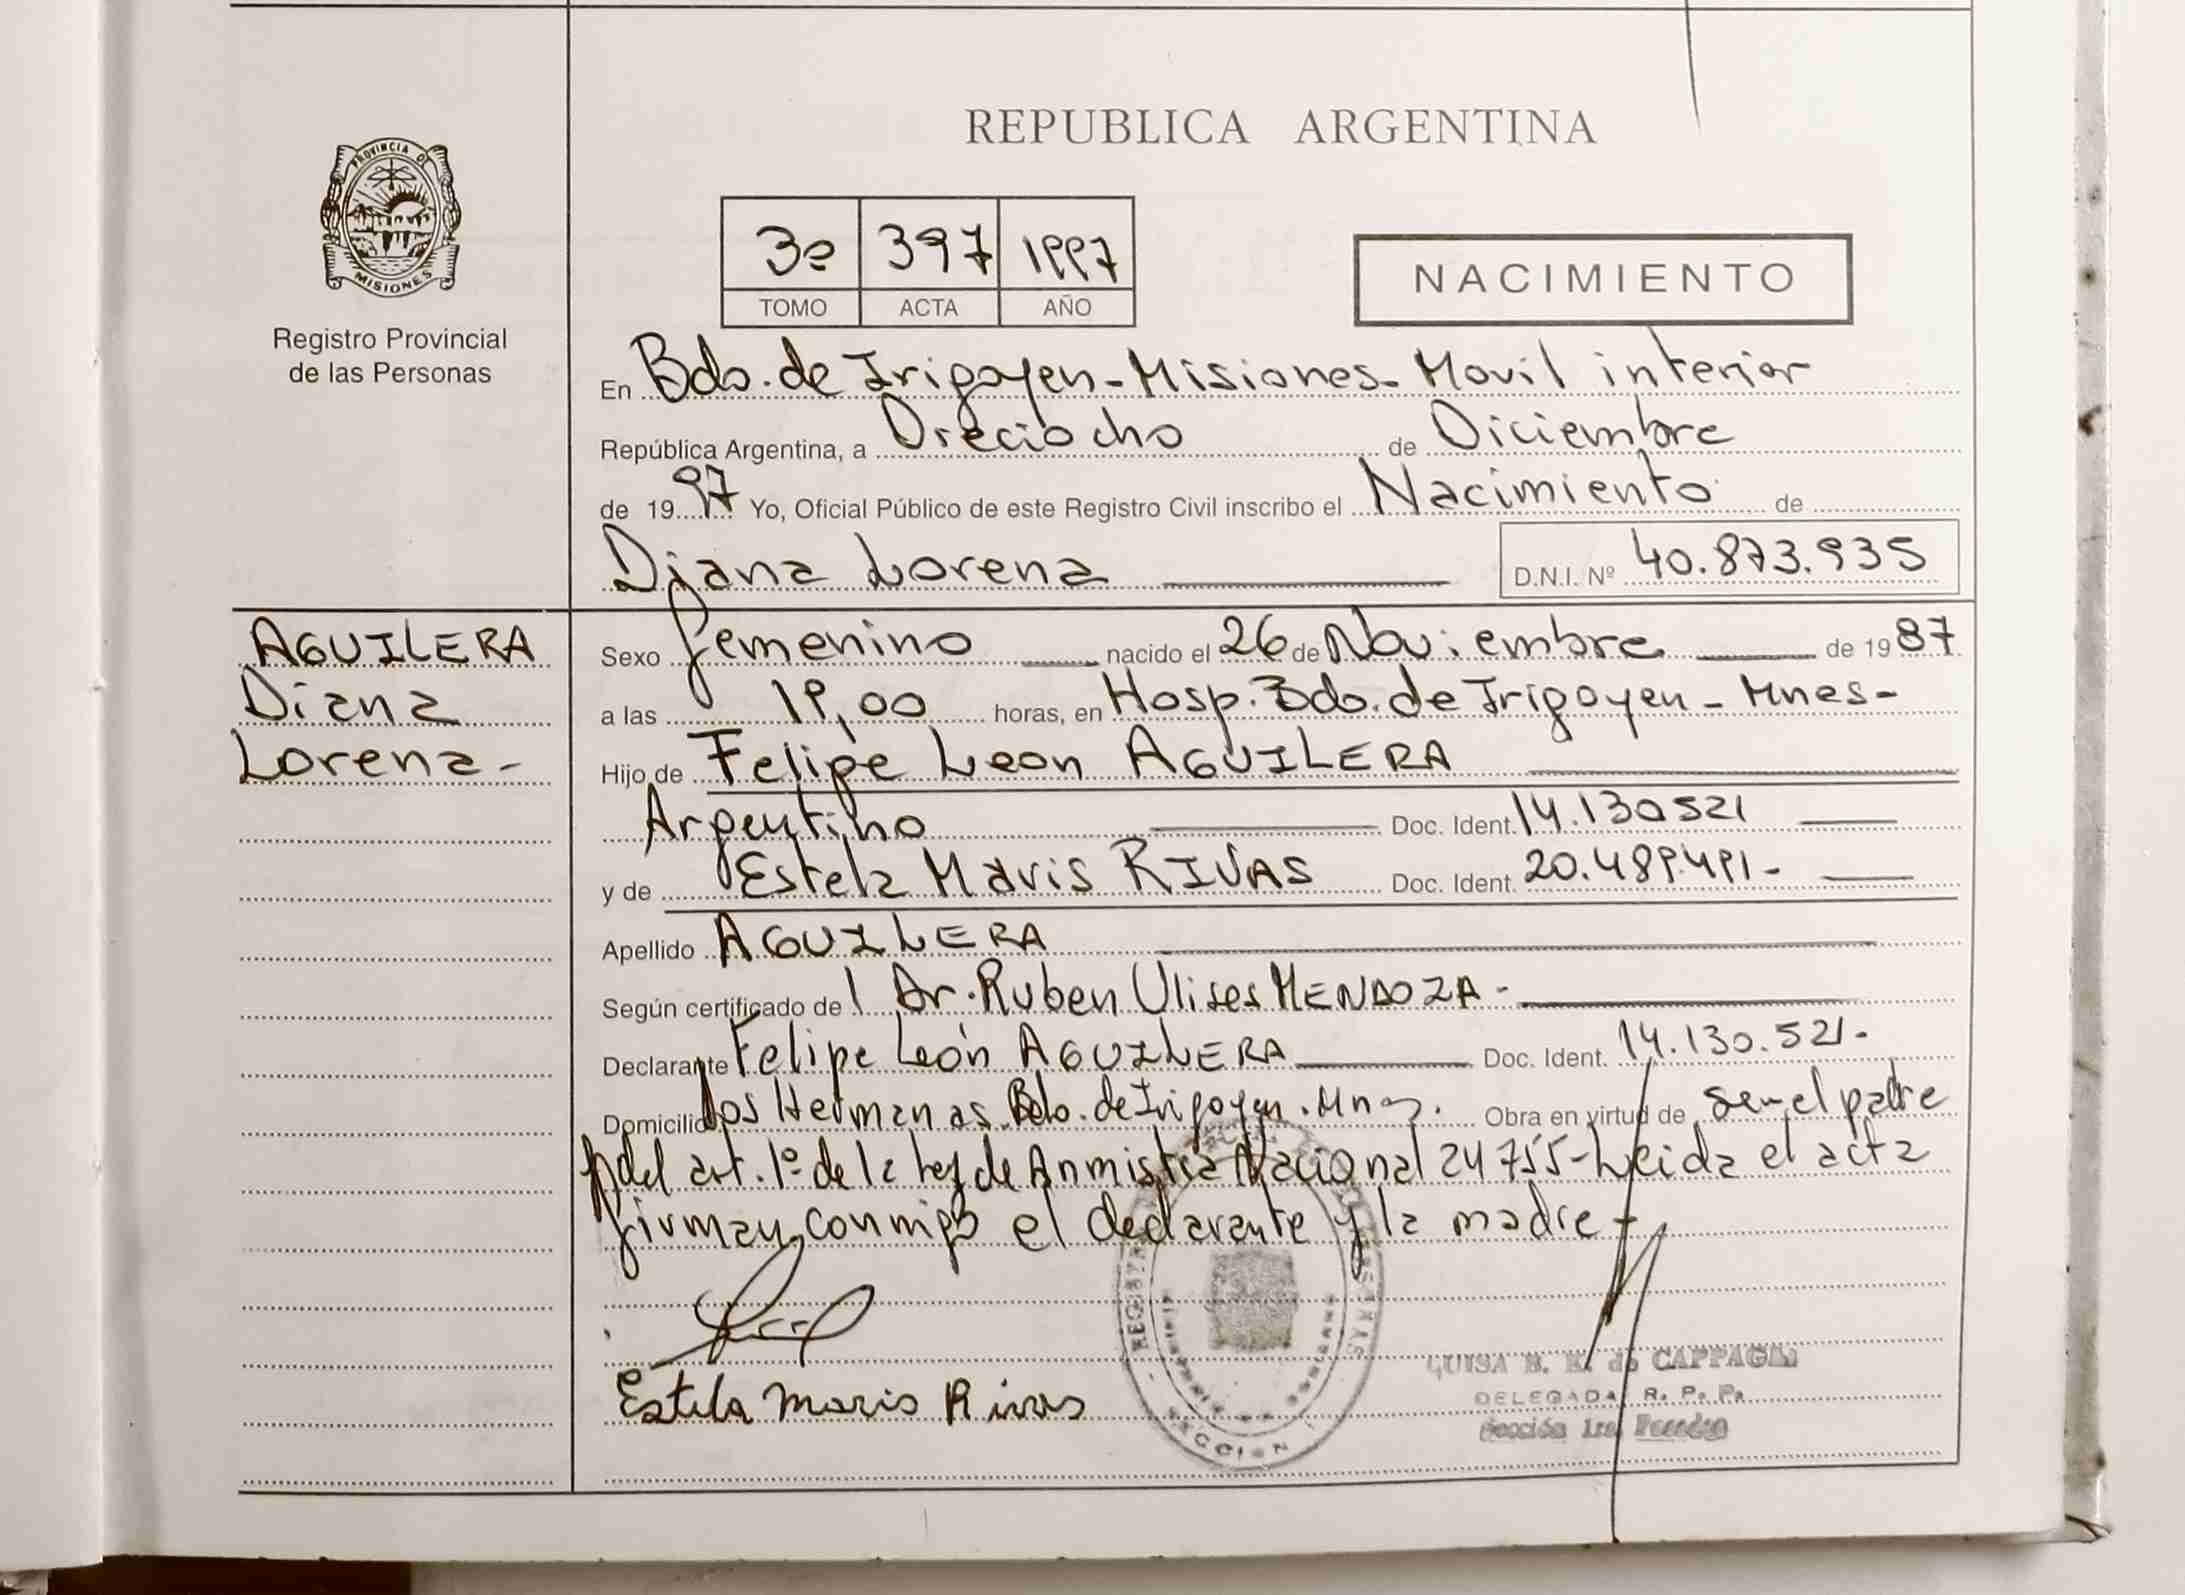 REPUBLICA ARGENTINA
PROVINCIA DE
MISIONES
Registro Provincial
de las Personas
3º 397 1997
TOMO ACTA AÑO
NACIMIENTO
En Bdo. de Irigoyen - Misiones - Movil interior
República Argentina, a Dieciocho de Diciembre
de 1997 Yo, Oficial Público de este Registro Civil inscribo el Nacimiento de
Diana Lorena D.N.I. Nº 40.873.935
AGUILERA
Diana
Lorena -
Sexo femenino nacido el 26 de Noviembre de 1987
a las 19,00 horas, en Hosp. Bdo. de Irigoyen - Mnes -
Hijo de Felipe Leon AGUILERA
Argentino Doc. Ident. 14.130521
y de Estela Maris RIVAS Doc. Ident. 20.489.491 -
Apellido AGUILERA
Según certificado del Dr. Ruben Ulises MENDOZA -
Declarante Felipe León AGUILERA Doc. Ident. 14.130.521 -
Domicilio Dos Hermanas Bdo. de Irigoyen. Mnes. Obra en virtud de ser el padre
del art. 1º de la Ley de Anmistia Nacional 24755 - Leida el acta
firman conmigo el declarante y la madre -
Estela Maris Rivas
LUISA de CAPPAGLI
DELEGADA R. P. P.
Sección 1ra.
SECCION